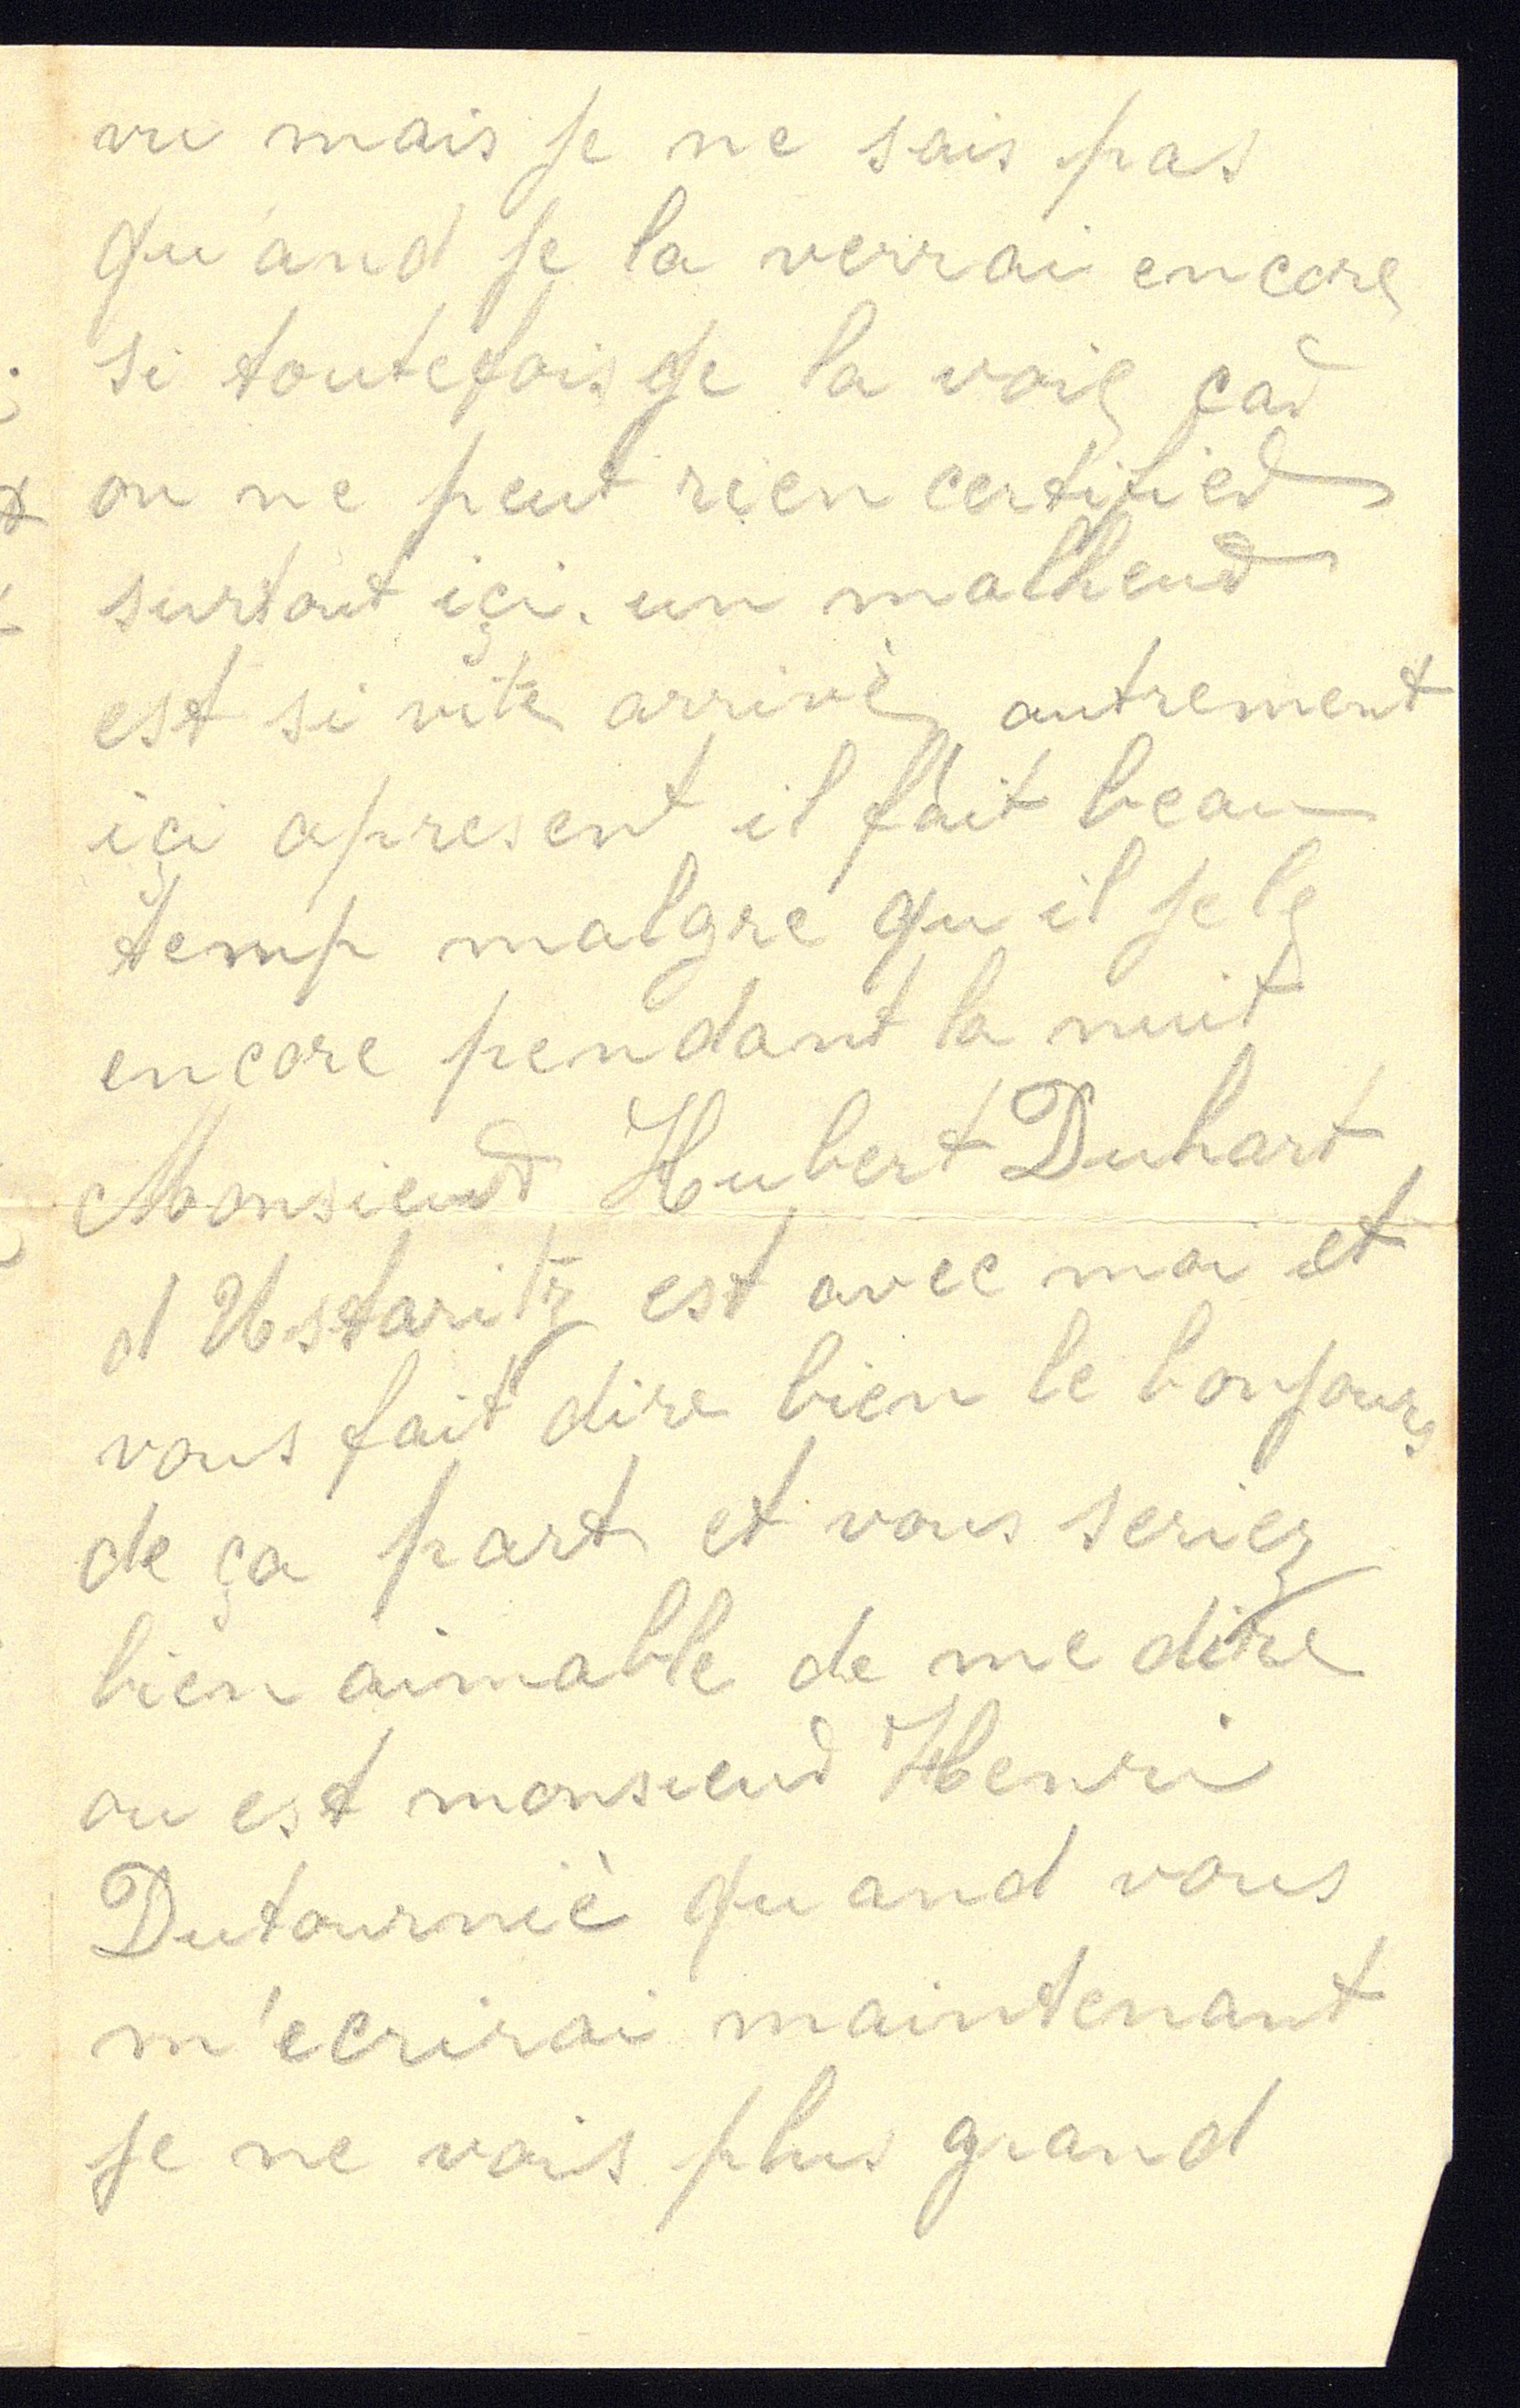 vu mais je ne sais pas
qu'and je la verrai encore
si toutefois je la voie çar
on ne peut rien certifier
surtout içi. un malheur
est si vite arrivè autrement
içi apresent il fait beau
temp malgre qu il jele
encore pendant la nuit
Monsieur Hubert Duhart
d Ustaritz est avec moi et
vous fait dire bien le bonjours
de ça part et vous seriez
bien aimable de me dire
ou est monsieur Henri
Dutourniè quand vous
m'ecrirai maintenant
je ne vois plus grand